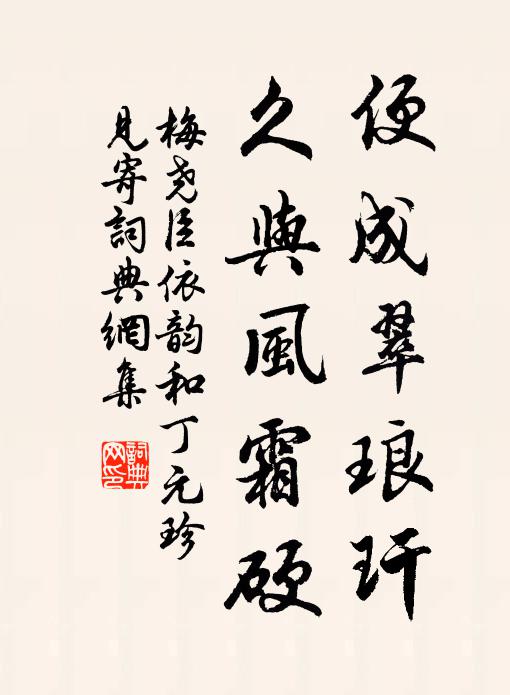 便成翠琅玕
久與風霜硬
梅堯臣依韵和丁元珍
見寄詞典網集
詞典
网印